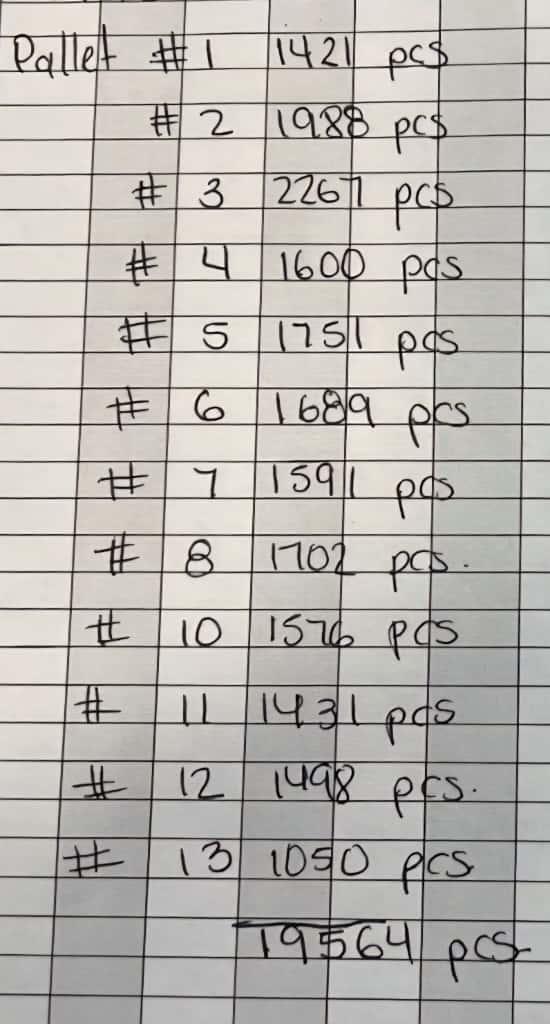 Pallet # 1 1421 pcs
# 2 1988 pcs
# 3 2267 pcs
# 4 1600 pcs
# 5 1751 pcs
# 6 1689 pcs
# 7 1591 pcs
# 8 1702 pcs.
# 10 1576 pcs
# 11 1431 pcs
# 12 1498 pcs.
# 13 1050 pcs
19564 pcs